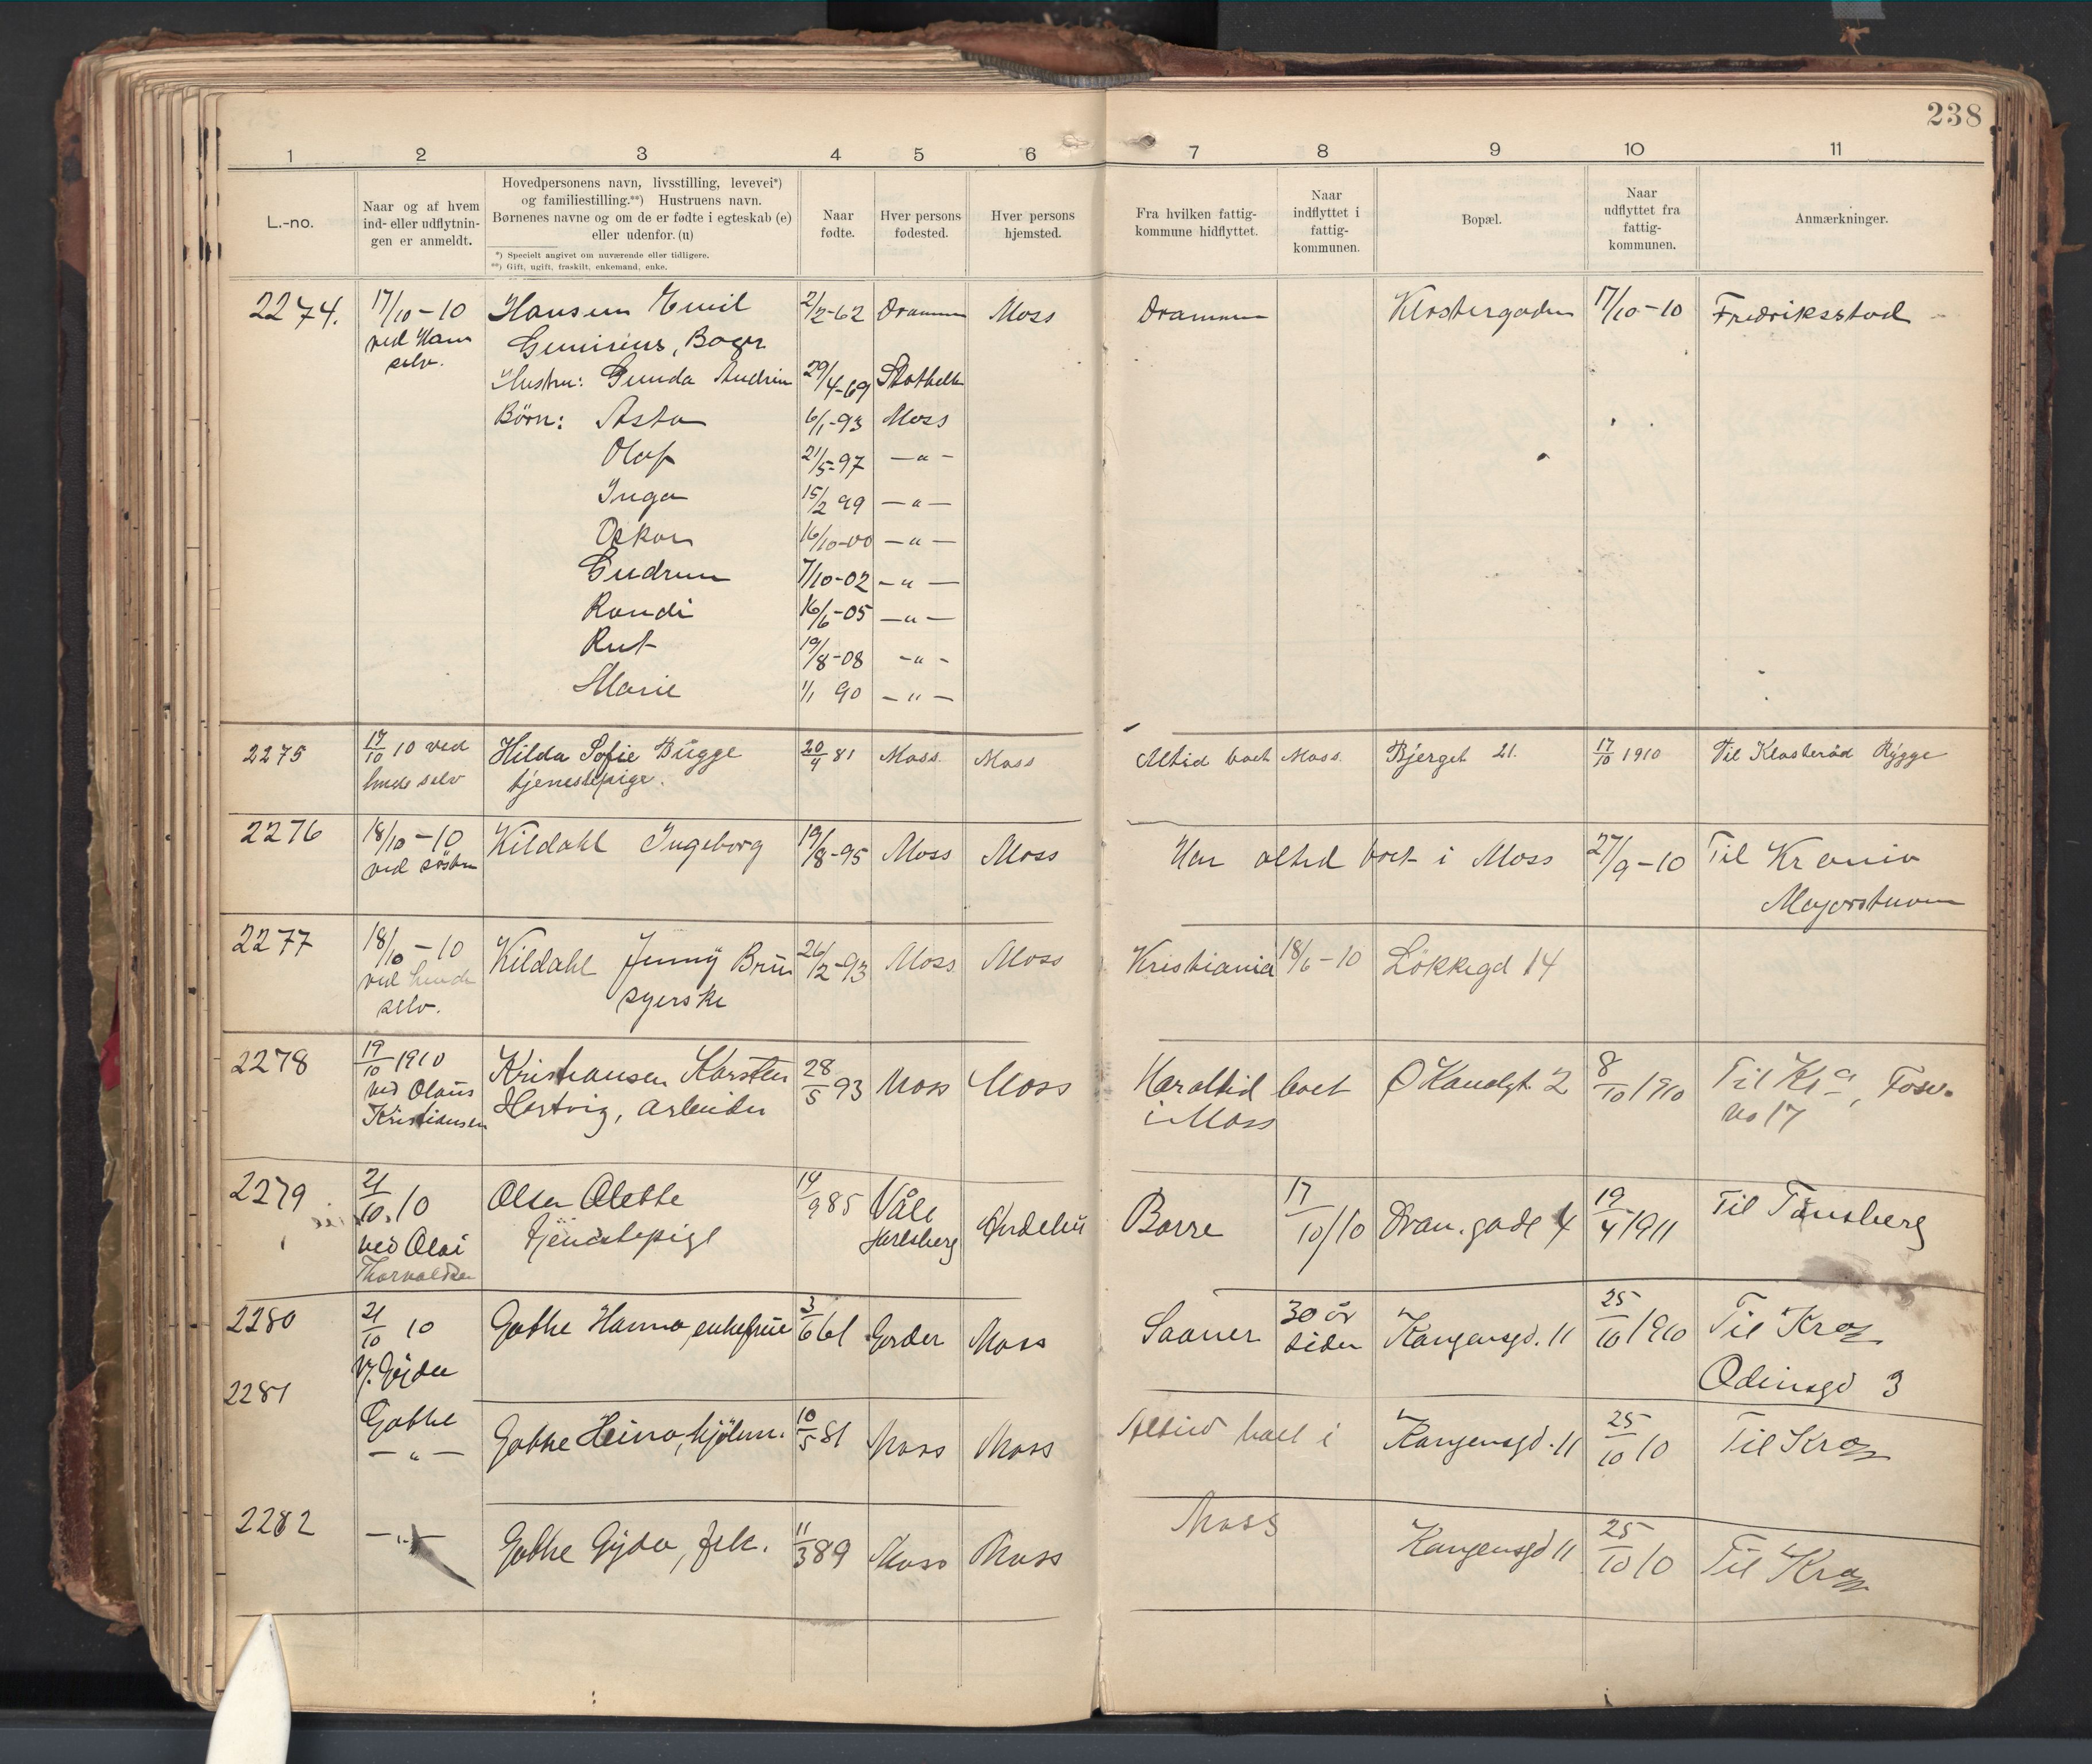 238
1 2 3 4 5 6 7 8 9 10 11
L.-no.
Naar og af hvem
ind- eller udflytnin-
gen er anmeldt.
Hovedpersonens navn, livsstilling, levevei*)
og familiestilling.**) Hustruens navn.
Børnenes navne og om de er fødte i egteskab (e)
eller udenfor. (u)
*) Specielt angivet om nuværende eller tidligere.
**) Gift, ugift, fraskilt, enkemand, enke.
Naar
fødte.
Hver persons
fødested.
Hver persons
hjemsted.
Fra hvilken fattig-
kommune hidflyttet.
Naar
indflyttet i
fattig-
kommunen.
Bopæl.
Naar
udflyttet fra
fattig-
kommunen.
Anmærkninger.
2274. 17/10-10 Hansen Emil 2/2-62 Drammen Moss Drammen Klostergaden 17/10-10 Fredriksstad
ved Ham Bager
selv.
Hustru: Gunda Andrin 29/4-69 Stathelle
Børn: Asta 6/1-93 Moss
Olaf 21/5-97 -"-
Inga 15/2 99 -"-
Oskar 16/10-00 -"-
Gudrun 7/10-02 -"-
Randi 16/6-05 -"-
Rut 19/8-08 -"-
Marie 1/1 90 -"-
2275 17/10 10 ved Hilda Sofie Bugge 20/4 81 Moss. Moss Altid boet Moss. Bjerget 21. 17/10 1910 Til Klosterød Rygge
hende selv tjenestepige.
2276 18/10-10 Kildahl Ingeborg 19/8-95 Moss Moss Har altid boet i Moss 27/9-10 Til Krania
ved søster Majorstuen
2277 18/10-10 Kildahl Jenny Brun 26/12-93 Moss Moss Kristiania 18/6-10 Løkkegd 14
ved hende syerske
selv.
2278 19/10 1910 Kristiansen Karsten 28/5 93 Moss Moss Har altid boet Ø Kanalgt. 2 8/10 1910 Til Kra, Fosv.
ved Olaus Hartvig, arbeider i Moss No 17
Kristiansen
2279 21/10. 10 Olsen Olette 14/9 85 Våle Borre 17/10/10 Dron. gade 4 19/4 1911 Til Tønsberg
ved Olai Tjenestepige Jarlsberg
Thorvaldsen
2280 21/10 10 Gothe Hanna, enkefrue 3/6 61 Moss Saaner 30 år siden Kongensgd. 11 25/10 1910 Til Kra
V. Gyda Odinsgd 3
2281 Gothe
-"- Gothe Heino, kjølm. 10/5 81 Moss Moss Altid boet i Kongensgd. 11 25/10 10 Til Kra
2282 -"- Gothe Gyda, frk. 11/3 89 Moss Moss Moss Kongensgd 11 25/10 10 Til Kra